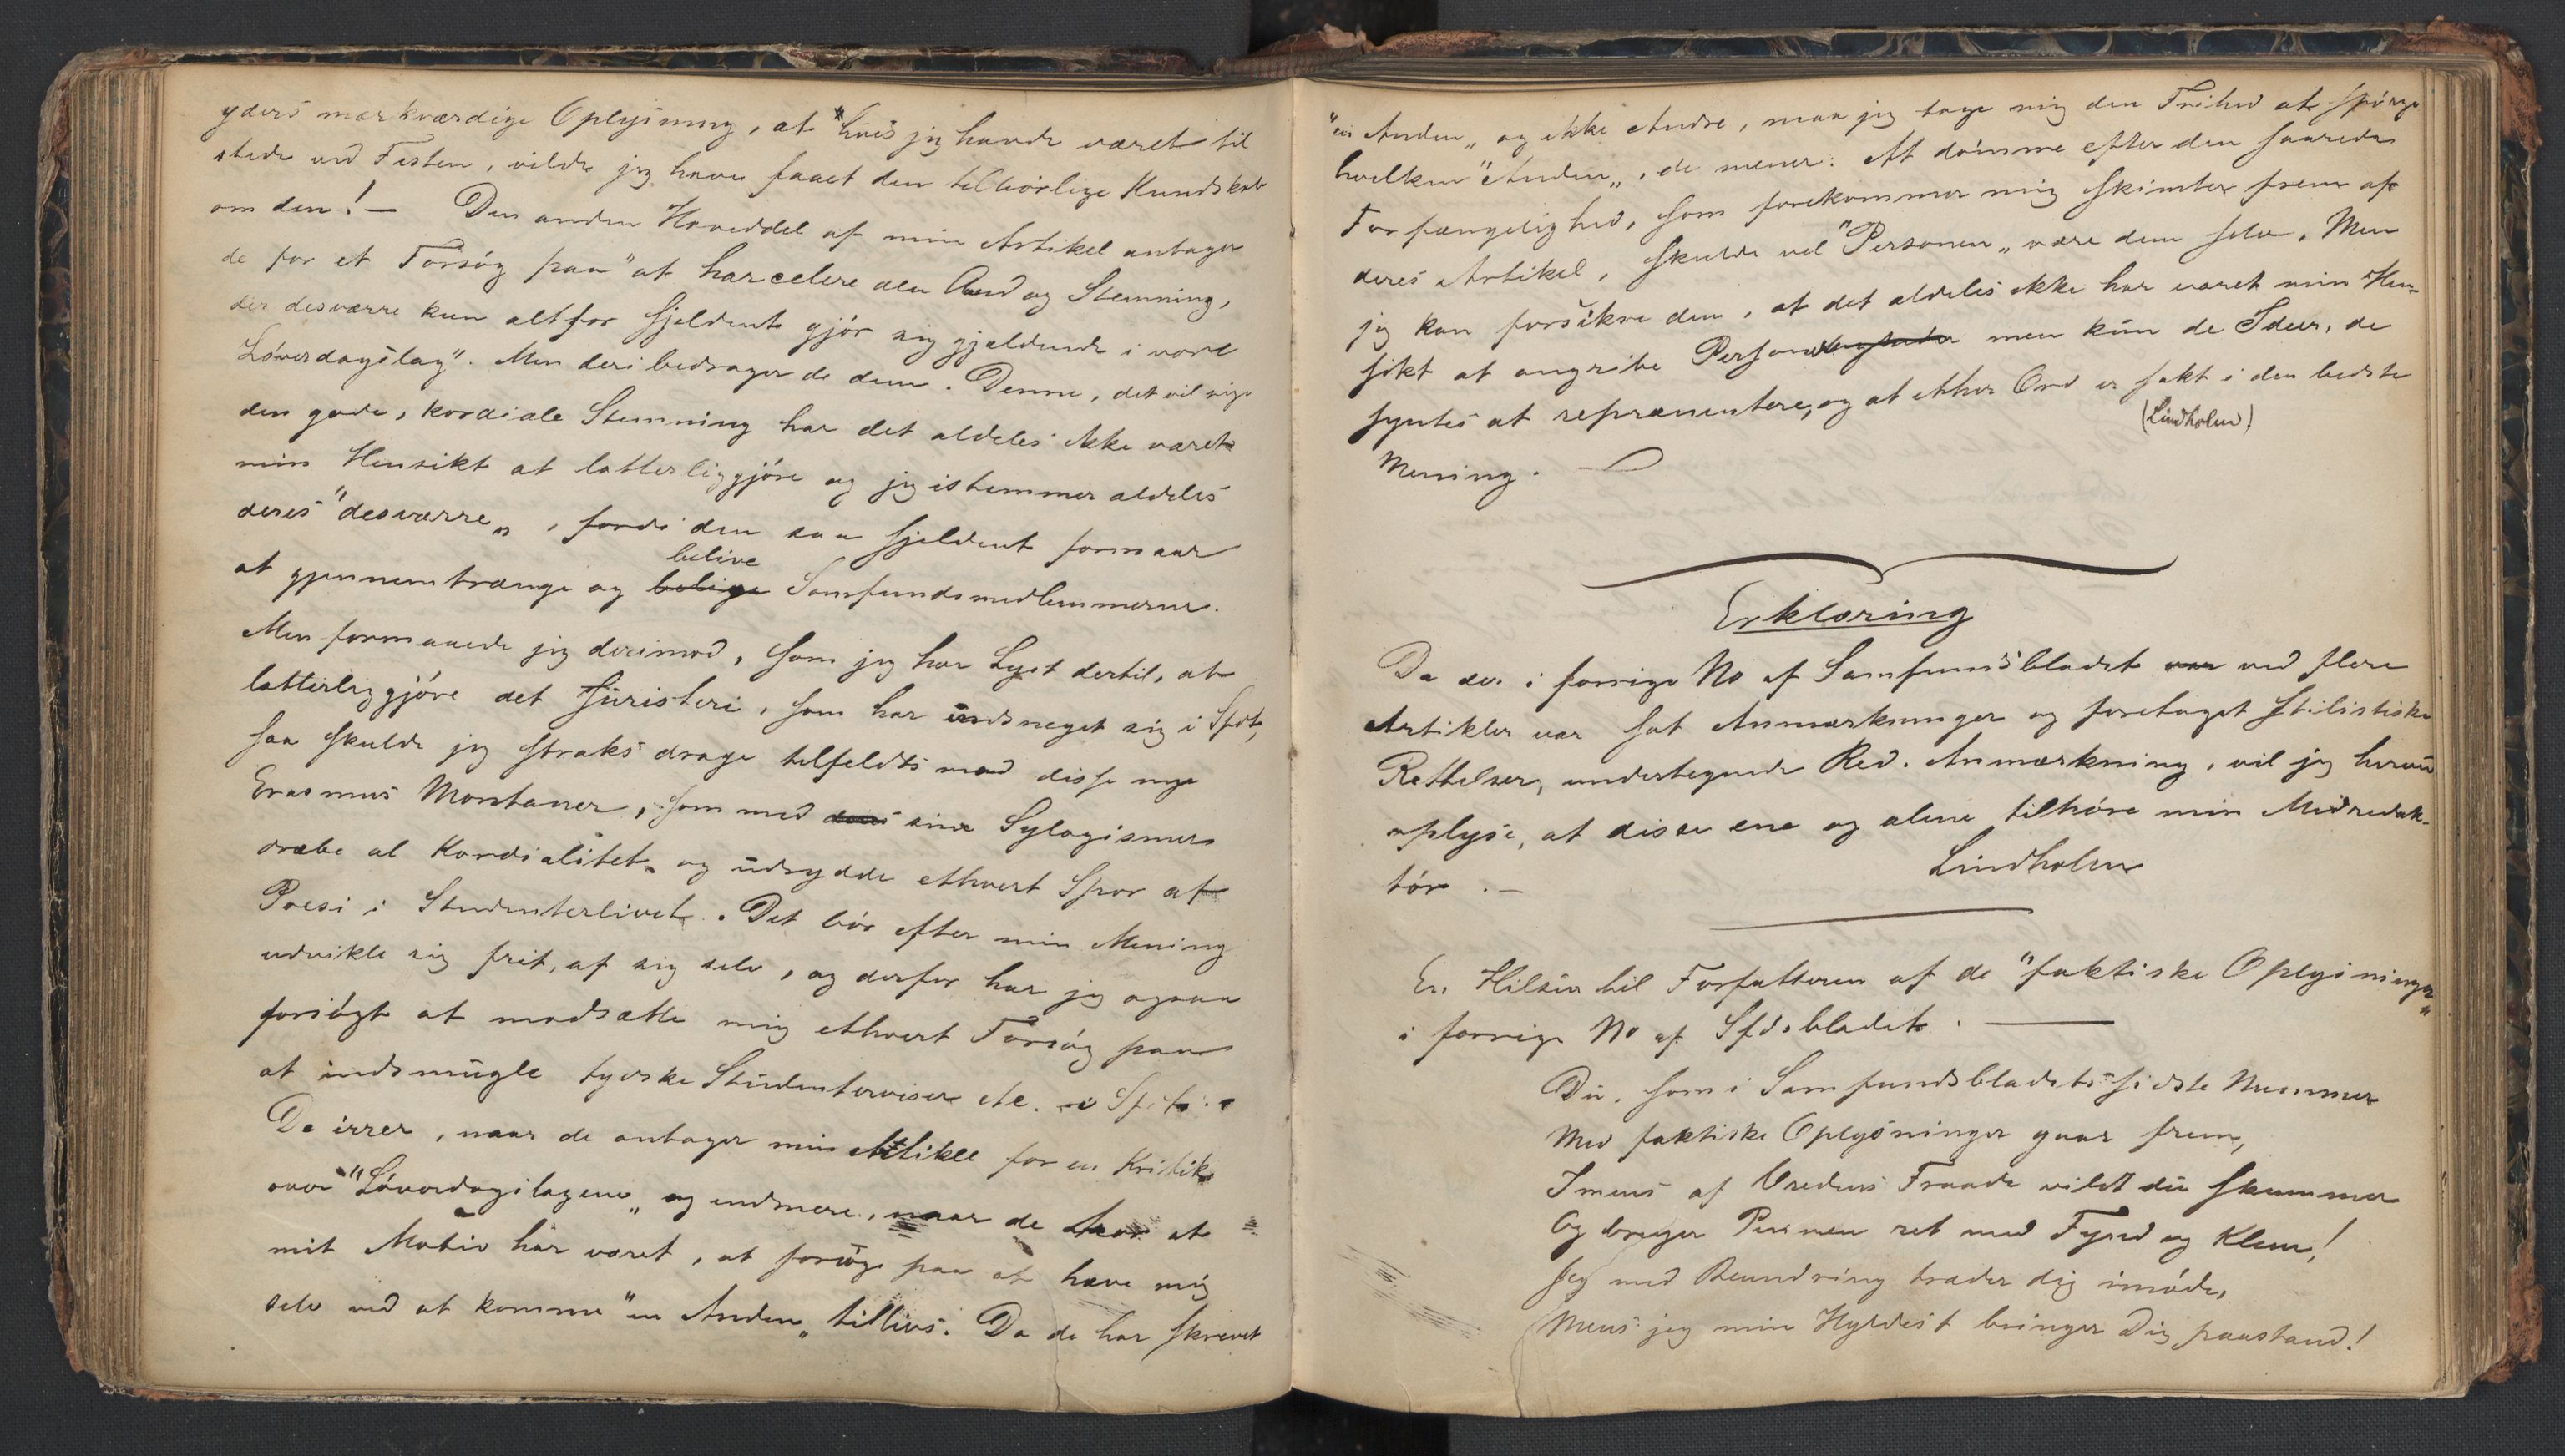 yders mærkværdige Oplysning, at "hvis jeg havde været til
stede ved Festen, vilde jeg have faaet den tilbørlige Kundskab
om den! — Den anden Hoveddel af min Artikel antager
de for et Forsøg paa "at harcelere den Aand og Stemning,
der desværre kun altfor sjeldent gjør sig gjeldende i vore
Løverdagslag". Men deri bedrager de dem. Denne, det vil sige
den gode, kordiale Stemning har det aldeles ikke været
min Hensikt at latterliggjøre og jeg istemmer aldeles
deres "desværre„, fordi den saa sjeldent formaar
at gjennemtrænge og belive Samfundsmedlemmerne.
Men formaaede jeg derimod, som jeg har Lyst dertil, at
latterliggjøre det Juristeri, som har indsneget sig i Sfdt,
saa skulde jeg straks drage tilfelts mod disse nye
Erasmus Montaner, som med sine Sylogismer
dræbe al Kordialitet og udrydde ethvert Spor af
Poesi i Studenterlivet. Det bør efter min Mening
udvikle sig frit, af sig selv, og derfor har jeg ogsaa
forsøgt at modsætte mig ethvert Forsøg paa
at indsmugle tydske Studenterviser etc. i Sfdt.
De irrer, naar de antager min Artikel for en Kritik
over "Løverdagslagene„ og endmere, naar de tror at
mit Motiv har været, at forsøge paa at hæve mig
selv ved at komme "en Anden„ tillivs. Da de har skrevet
"en Anden„ og ikke Andre, maa jeg tage mig den Frihed at spørge
hvilken "Anden„, de mener. At dømme efter den saarede
Forfængelighed, som forekommer mig skimter frem af
deres Artikel, skulde vel "Personen„ være dem selv. Men
jeg kan forsikre dem, at det aldeles ikke har været min Hen-
sikt at angribe Person men kun de Ideer, de
syntes at repræsentere, og at ethver Ord er sakt i den bedste
Mening. —
(Lindholm)
Erklæring
Da der i forrige No af Samfundsbladet ved flere
Artikler var sat Anmærkninger og foretaget stilistiske
Rettelser, undertegnede Red. Anmærkning, vil jeg herved
oplyse, at disse ene og alene tilhøre min Medredak-
tør. —
Lindholm
En Hilsen til Forfatteren af de "faktiske Oplysninger„
i forrige No af Sfdsbladet. —
Du, som i Samfundsbladets sidste Nummer
Med faktiske Oplysninger gaar frem,
Imens af Vredens Fraade vildt du skummer
Og bruger Pennen ret med Fynd og Klem!
Jeg med Beundring træder dig imøde,
Mens jeg min Hyldest bringer Dig paastand!